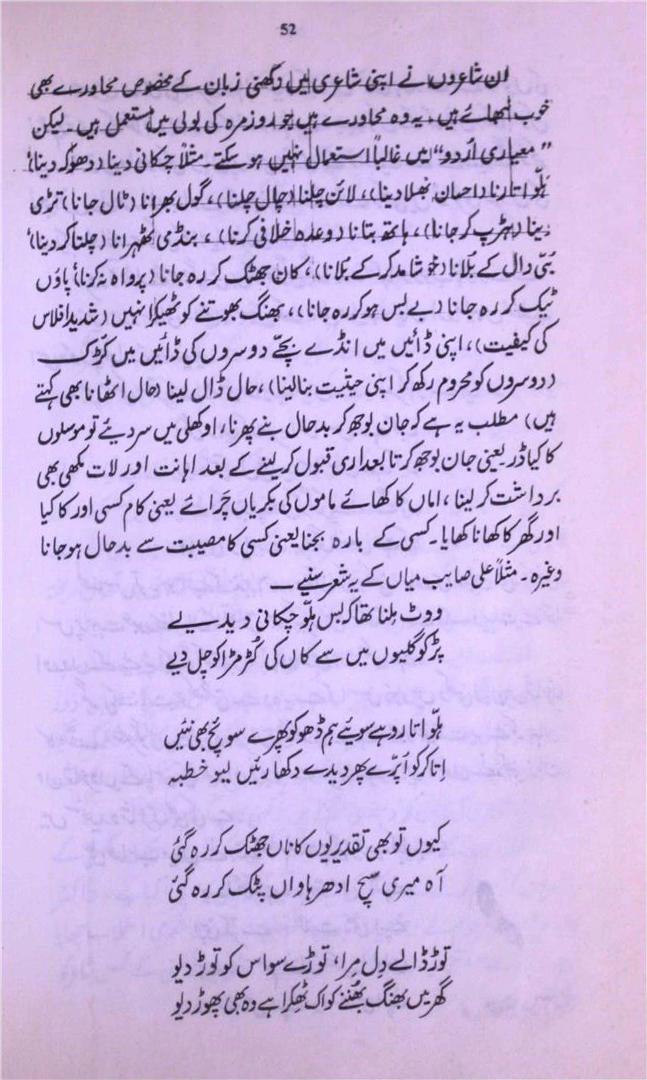 52
ان شاعروں نے اپنی شاعری میں دکھنی زبان کے مخصوص محاورے بھی
خوب نبھائے ہیں۔ یہ وہ محاورے ہیں جو روزمرہ کی بولی میں مستعمل ہیں۔ لیکن
"معیاری اُردو" میں غالباً استعمال نہیں ہو سکتے۔ مثلاً چکانی دینا (دھوکہ دینا)
ہلّو اتارنا (احسان بھلا دینا)، لائن چلنا (چال چلنا)، گول بھرانا (ٹال جانا) تڑی
دینا (ہڑپ کر جانا)، ہاتھ بتانا (وعدہ خلافی کرنا)، بنڈی ٹھہرانا (چلتا کر دینا)
بتّی دال کے بُلانا (خوشامد کر کے بُلانا)، کان جھٹک کر رہ جانا (پرواہ نہ کرنا) پاؤں
ٹیک کر رہ جانا (بے بس ہو کر رہ جانا)، بھنگ بھوتنے کو ٹھیکرا نہیں (شدید افلاس
کی کیفیت)، اپنی ڈائیں میں انڈے بچّے دوسروں کی ڈائیں میں کڑک
(دوسروں کو محروم رکھ کر اپنی حیثیت بنا لینا)، حال ڈال لینا (حال اٹھانا بھی کہتے
ہیں) مطلب یہ ہے کہ جان بوجھ کر بدحال بنے پھرنا، اوکھلی میں سر دیئے تو موسلوں
کا کیا ڈر یعنی جان بوجھ کر تابعداری قبول کر لینے کے بعد اہانت اور لات مکّھی بھی
برداشت کر لینا، اماں کا کھائے ماموں کی بکریاں چَرائے یعنی کام کسی اور کا کیا
اور گھر کا کھانا کھایا۔ کسی کے بارہ بجنا یعنی کسی کا مصیبت سے بدحال ہو جانا
وغیرہ۔ مثلاً علی صایب میاں کے یہ شعر سنیے ــ
ووٹ بلنا تھا کہ بس ہلّو چکانی دیدیے
پڑ کو گلیوں میں سے کاں کی کُڑمڑا کو چل دیے
ہلو اتارو ہے سویئے ہم ڈھوکو پھرے سو یچ بھی نئیں
اِتا کر کو اُپرے پھر دیدے دکھا رئیں لیو خطبہ
کیوں تو بھی تقدیر یوں کاناں جھٹک کر رہ گئی
آہ میری سچ ادھر ہاواں پٹک کر رہ گئی
توڑ ڈالے دِل مِرا، توڑے سو اس کو توڑ دیو
گھر میں بھنگ بھُننے کو اک ٹھکرا ہے وہ بھی پھوڑ دیو